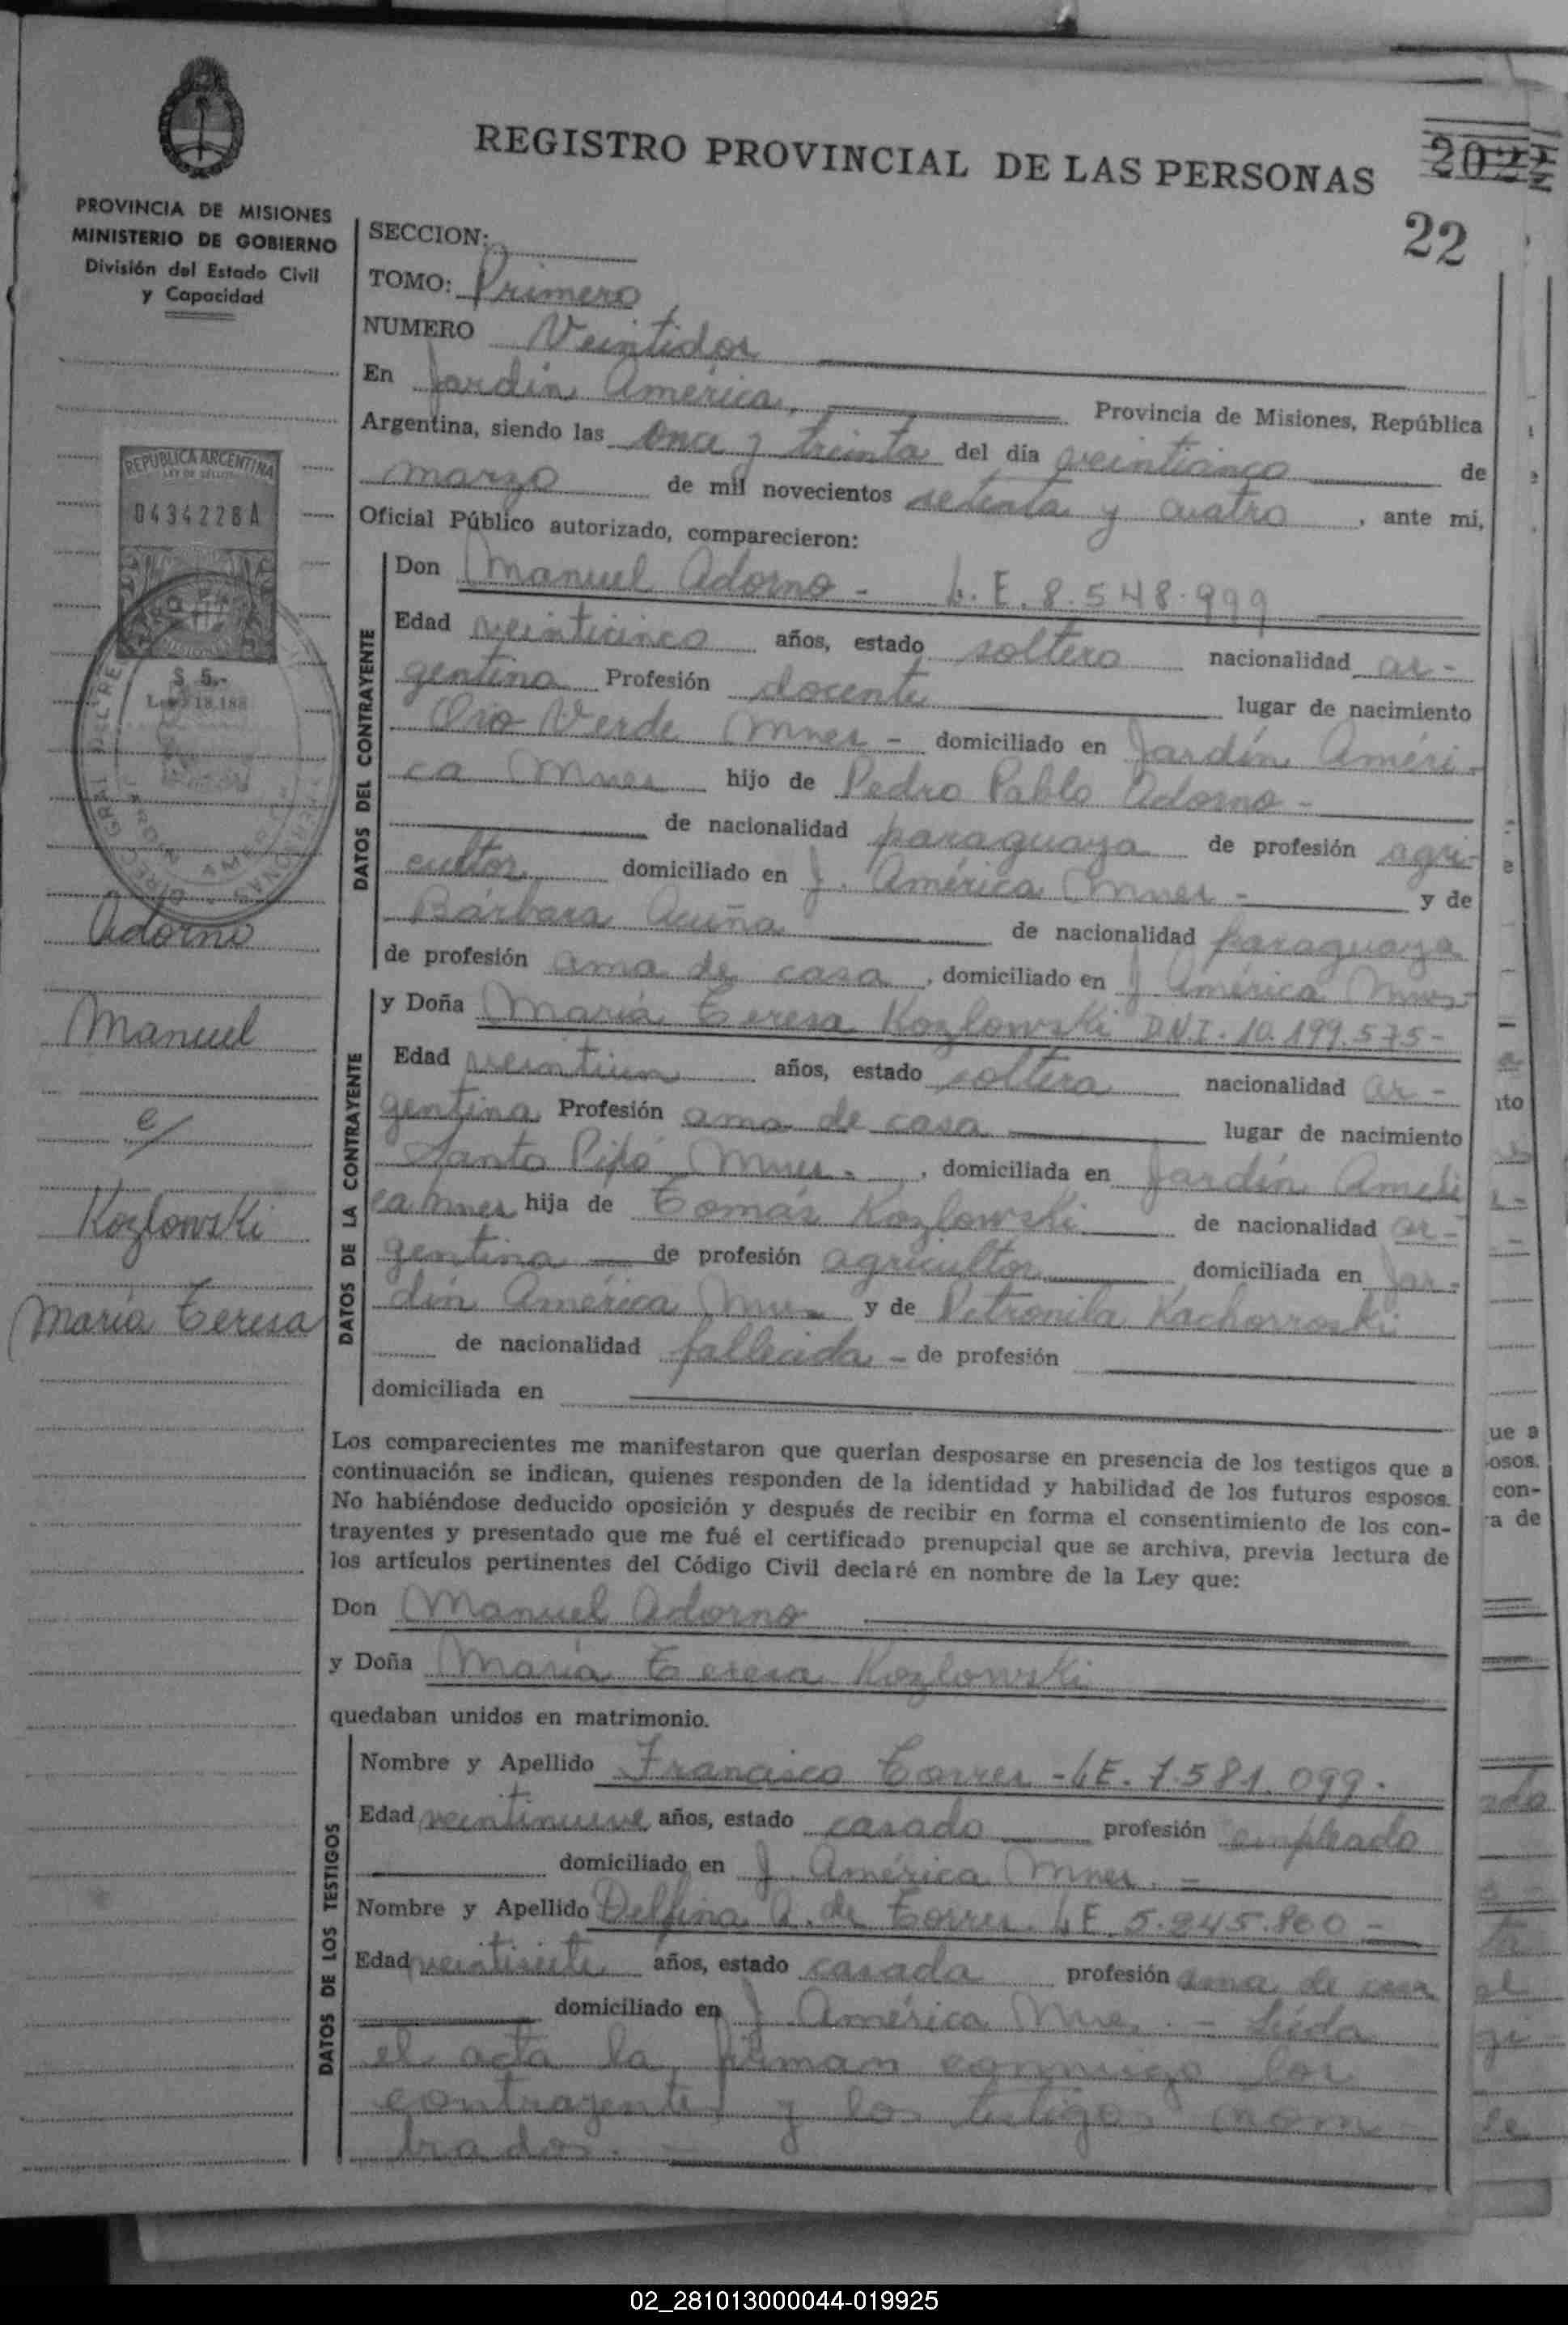 REGISTRO PROVINCIAL DE LAS PERSONAS
22
PROVINCIA DE MISIONES
MINISTERIO DE GOBIERNO
División del Estado Civil
y Capacidad
REPUBLICA ARGENTINA
LEY DE SELLOS
0434228 A
$ 5.-
Ley 18.188
Adorno
Manuel
c/
Kozlowski
María Teresa
SECCION:
TOMO: Primero
NUMERO Veintidos
En Jardín América, Provincia de Misiones, República
Argentina, siendo las once y treinta del día veinticinco de
marzo de mil novecientos setenta y cuatro, ante mi,
Oficial Público autorizado, comparecieron:
DATOS DEL CONTRAYENTE
Don Manuel Adorno - L.E. 8.548.999
Edad veinticinco años, estado soltero nacionalidad ar-
gentina Profesión docente lugar de nacimiento
Oro Verde Mnes - domiciliado en Jardín Améri-
ca Mnes hijo de Pedro Pablo Adorno -
de nacionalidad paraguaya de profesión agri-
cultor domiciliado en J. América Mnes - y de
Bárbara Acuña de nacionalidad paraguaya
de profesión ama de casa, domiciliado en J América Mnes-
DATOS DE LA CONTRAYENTE
y Doña María Teresa Kozlowski D.N.I. 10.199.575-
Edad veintiun años, estado soltera nacionalidad ar-
gentina Profesión ama de casa lugar de nacimiento
Santo Pipó Mnes-, domiciliada en Jardín Améri
ca Mnes hija de Tomás Kozlowski de nacionalidad ar-
gentina de profesión agricultor domiciliada en Jar-
dín América Mnes y de Petronila Kachorroski
de nacionalidad fallecida - de profesión
domiciliada en
Los comparecientes me manifestaron que querían desposarse en presencia de los testigos que a
continuación se indican, quienes responden de la identidad y habilidad de los futuros esposos.
No habiéndose deducido oposición y después de recibir en forma el consentimiento de los con-
trayentes y presentado que me fué el certificado prenupcial que se archiva, previa lectura de
los artículos pertinentes del Código Civil declaré en nombre de la Ley que:
Don Manuel Adorno
y Doña María Teresa Kozlowski
quedaban unidos en matrimonio.
DATOS DE LOS TESTIGOS
Nombre y Apellido Francisco Torres - L.E. 7.581.099.
Edad veintinueve años, estado casado profesión empleado
domiciliado en J. América Mnes. -
Nombre y Apellido Delfina A. de Torres. L E 5.245.860 -
Edad veintisiete años, estado casada profesión ama de casa
domiciliado en J América Mnes. - Leída
el acta la firman conmigo los
contrayentes y los testigos nom
brados.
02_281013000044-019925